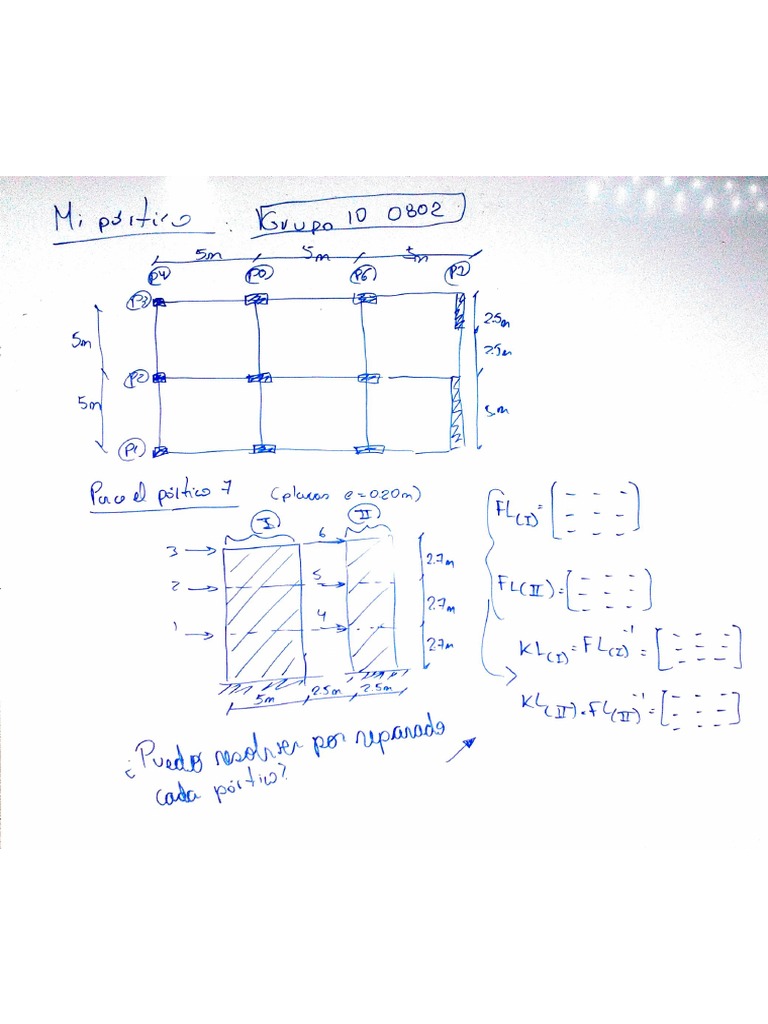 Mi pórtico : Grupo 10 0802
5m 5m 5m
P4 P6 P7
P3
2.5m
5m
2.5m
P2
5m
5m
P1
Para el pórtico 7 (placas e=0.20m)
I II
3 6
2 5
1 4
2.7m
2.7m
2.7m
5m 2.5m 2.5m
FL(I) = [ - - - - - - - - - ]
FL(II) = [ - - - - - - - - - ]
KL(I) = FL(I)⁻¹ = [ - - - - - - - - - ]
KL(II) = FL(II)⁻¹ = [ - - - - - - - - - ]
¿Puedo resolver por separado
cada pórtico?